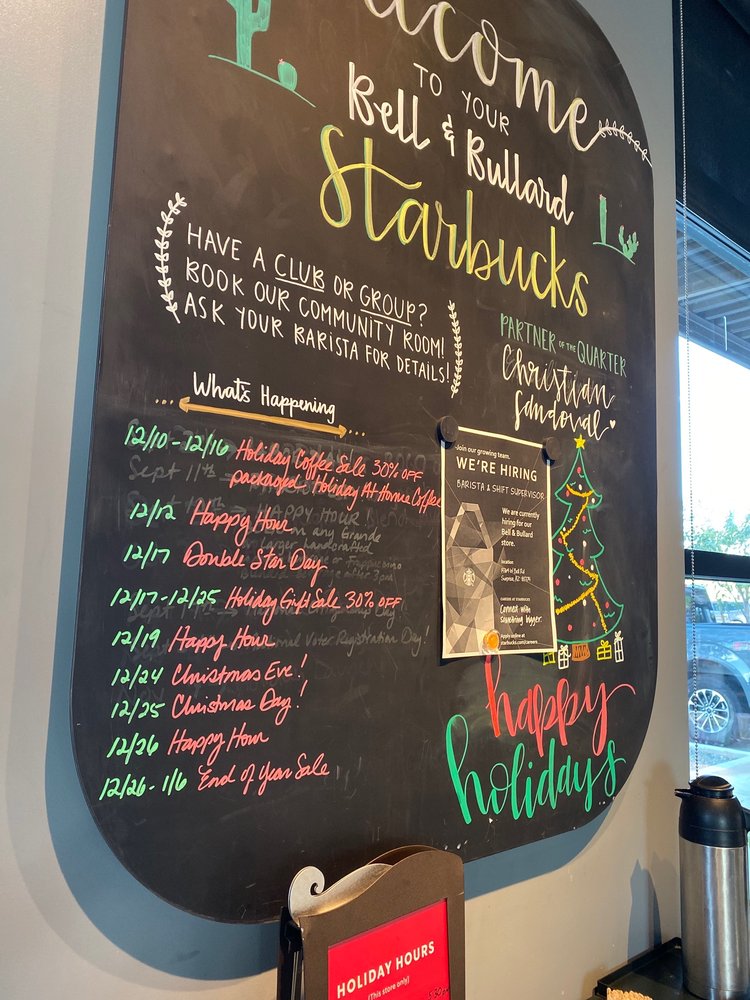 welcome
TO YOUR
Bell & Bullard
Starbucks
HAVE A CLUB OR GROUP?
BOOK OUR COMMUNITY ROOM!
ASK YOUR BARISTA FOR DETAILS!
PARTNER OF THE QUARTER
Christian
Sandoval
What's Happening
12/10 - 12/16 Holiday Coffee Sale 30% OFF
packaged Holiday At Home Coffee
Sept 11th
12/12 Happy Hour
HAPPY HOUR!
on any Grande
or larger handcrafted
after 3pm
12/17 Double Star Day
12/17 - 12/25 Holiday Gift Sale 30% OFF
12/19 Happy Hour
Voter Registration Day!
12/24 Christmas Eve!
12/25 Christmas Day!
12/26 Happy Hour
12/26 - 1/6 End of Year Sale
Join our growing team.
WE'RE HIRING
BARISTA & SHIFT SUPERVISOR
We are currently
hiring for our
Bell & Bullard
store.
Location
Surprise, AZ
Connect with
something bigger.
Apply online at
starbucks.com/careers
happy
holidays
HOLIDAY HOURS
(This store only)